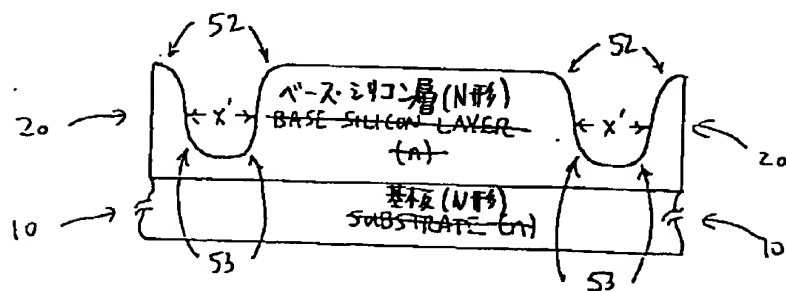 52 52
ベース・シリコン層(N形)
20 X' BASE SILICON LAYER X' 20
(n)
基板(N形)
10 SUBSTRATE (n) 10
53 53